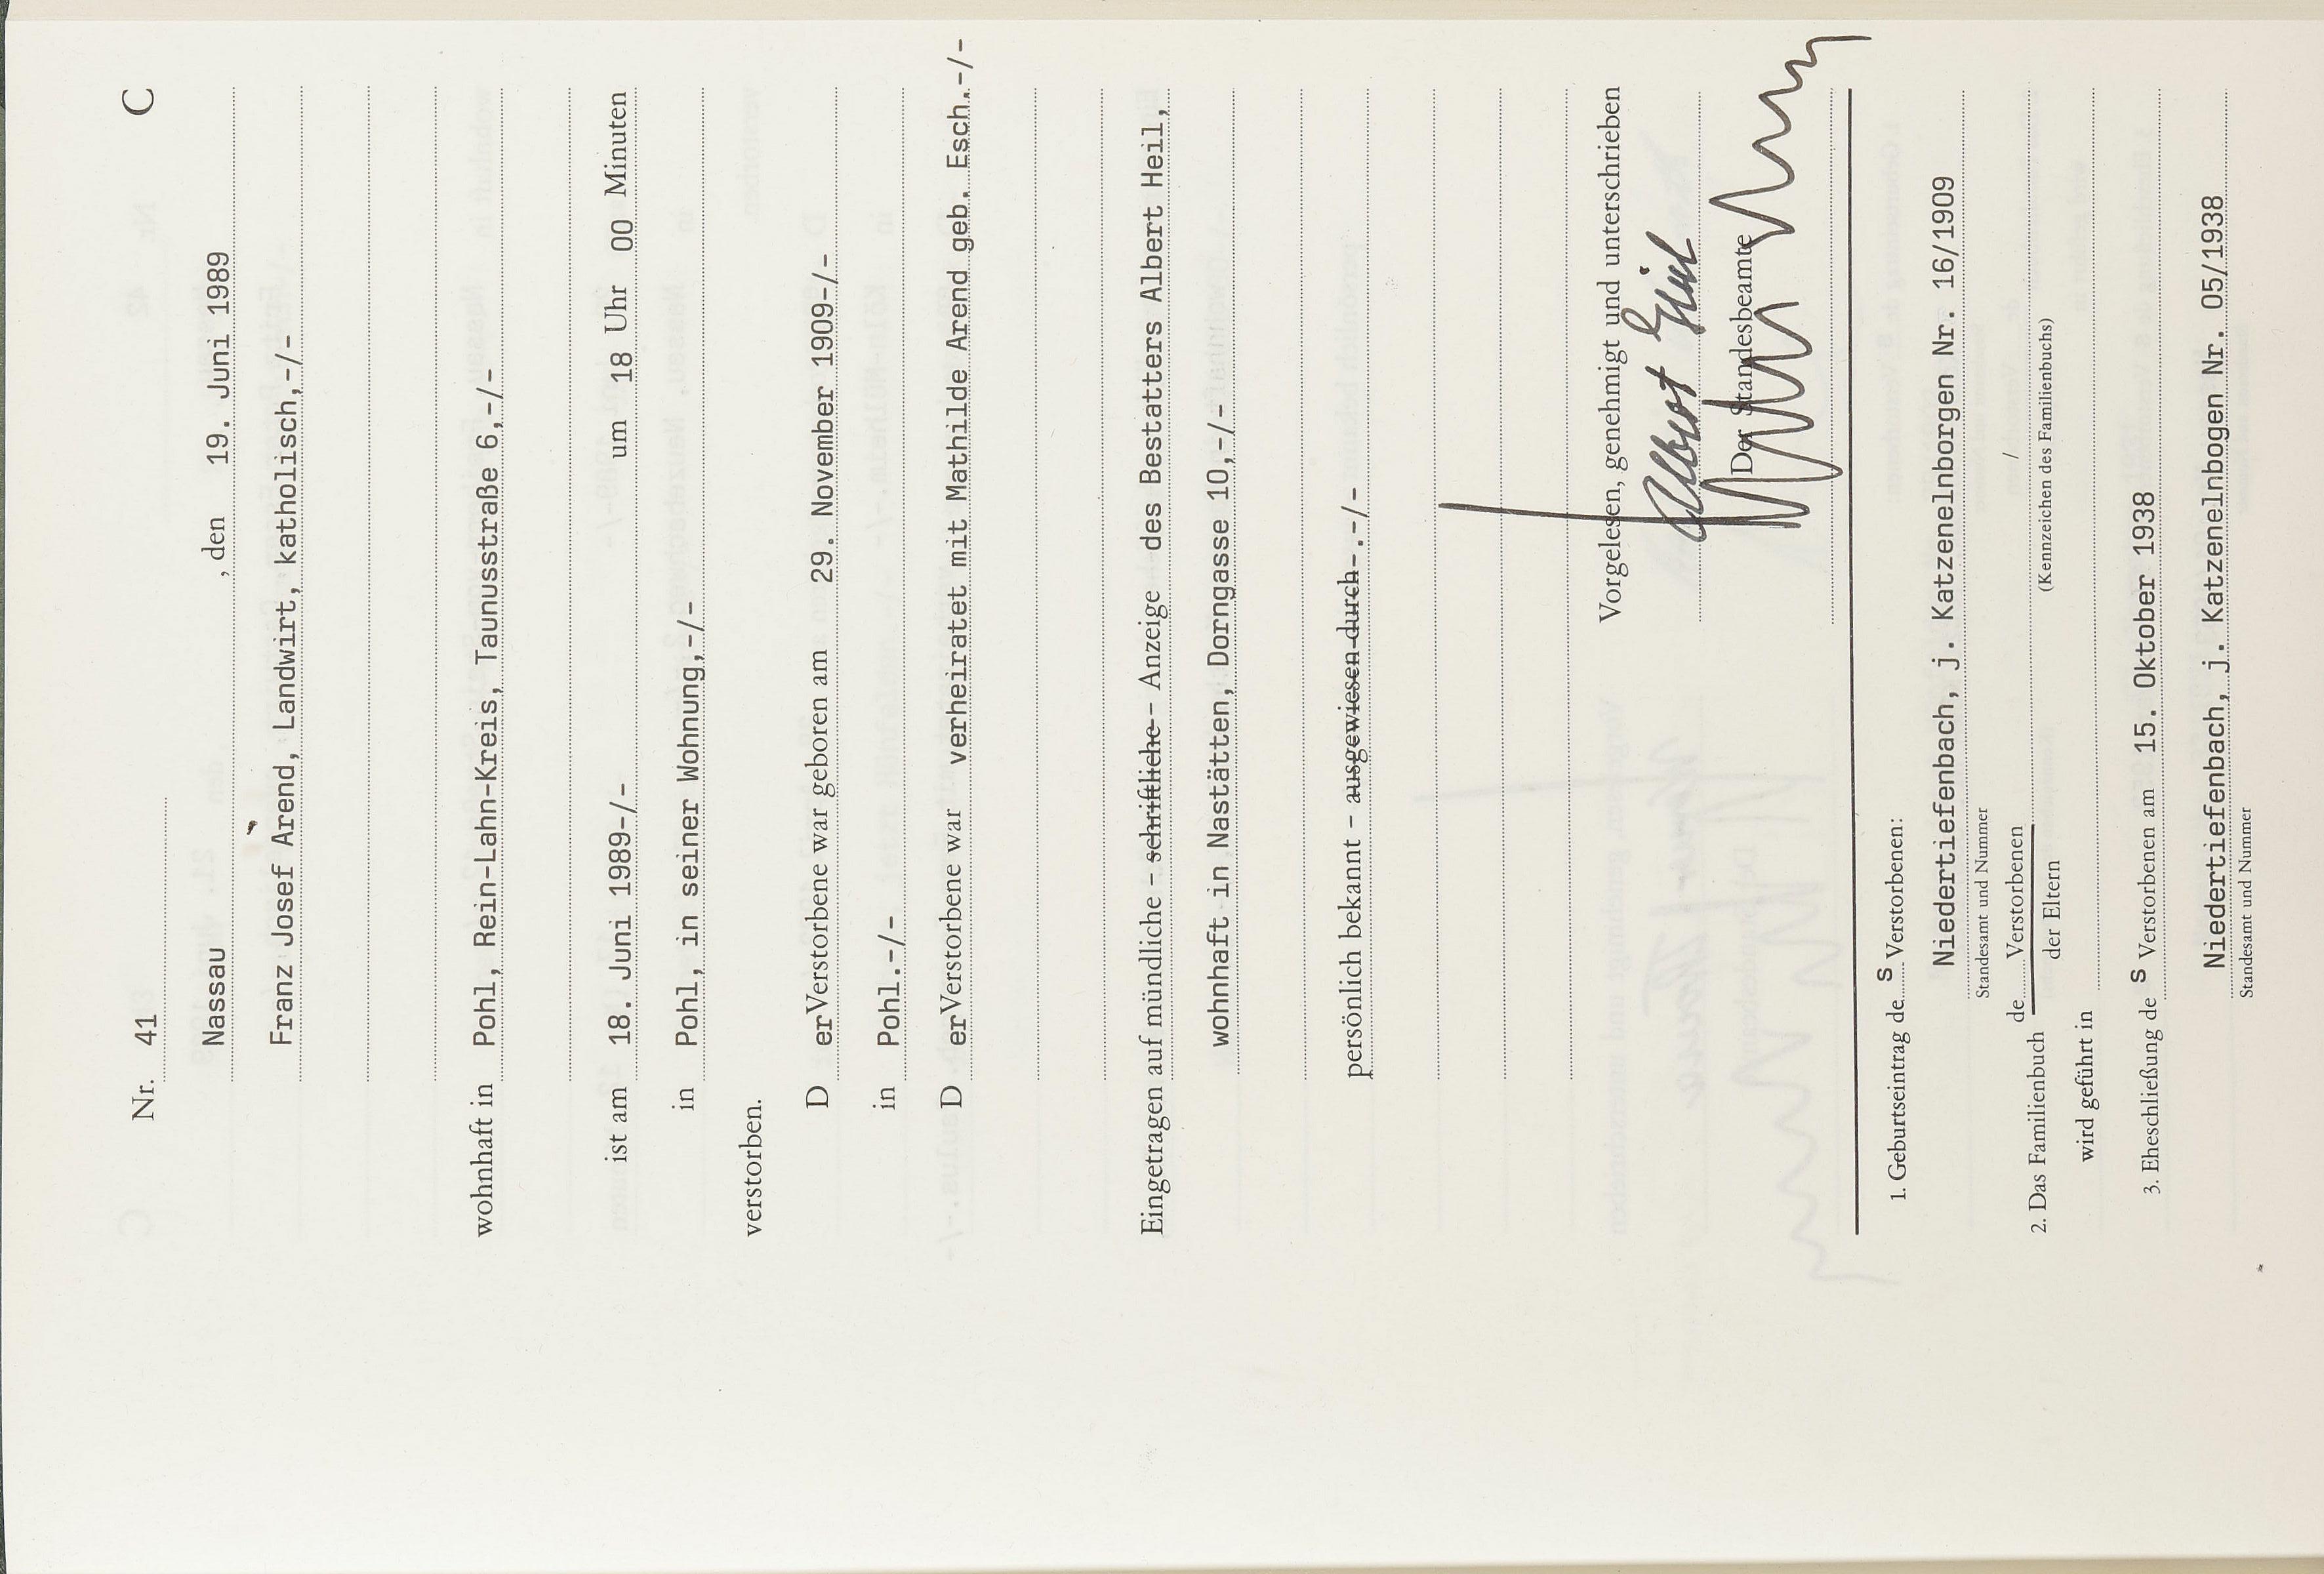 Nr. 41 C
Nassau , den 19. Juni 1989
Franz Josef Arend, Landwirt, katholisch,-/-
wohnhaft in Pohl, Rein-Lahn-Kreis, Taunusstraße 6,-/-
ist am 18. Juni 1989-/- um 18 Uhr 00 Minuten
in Pohl, in seiner Wohnung,-/-
verstorben.
D er Verstorbene war geboren am 29. November 1909-/-
in Pohl.-/-
D er Verstorbene war verheiratet mit Mathilde Arend geb. Esch.-/-
Eingetragen auf mündliche – schriftliche – Anzeige des Bestatters Albert Heil,
wohnhaft in Nastätten, Dorngasse 10,-/-
persönlich bekannt – ausgewiesen durch-.-/-
Vorgelesen, genehmigt und unterschrieben
Albert Heil
Der Standesbeamte
1. Geburtseintrag des Verstorbenen:
Niedertiefenbach, j. Katzenelnborgen Nr. 16/1909
Standesamt und Nummer
2. Das Familienbuch de Verstorbenen /
der Eltern (Kennzeichen des Familienbuchs)
wird geführt in
3. Eheschließung des Verstorbenen am 15. Oktober 1938
Niedertiefenbach, j. Katzenelnbogen Nr. 05/1938
Standesamt und Nummer